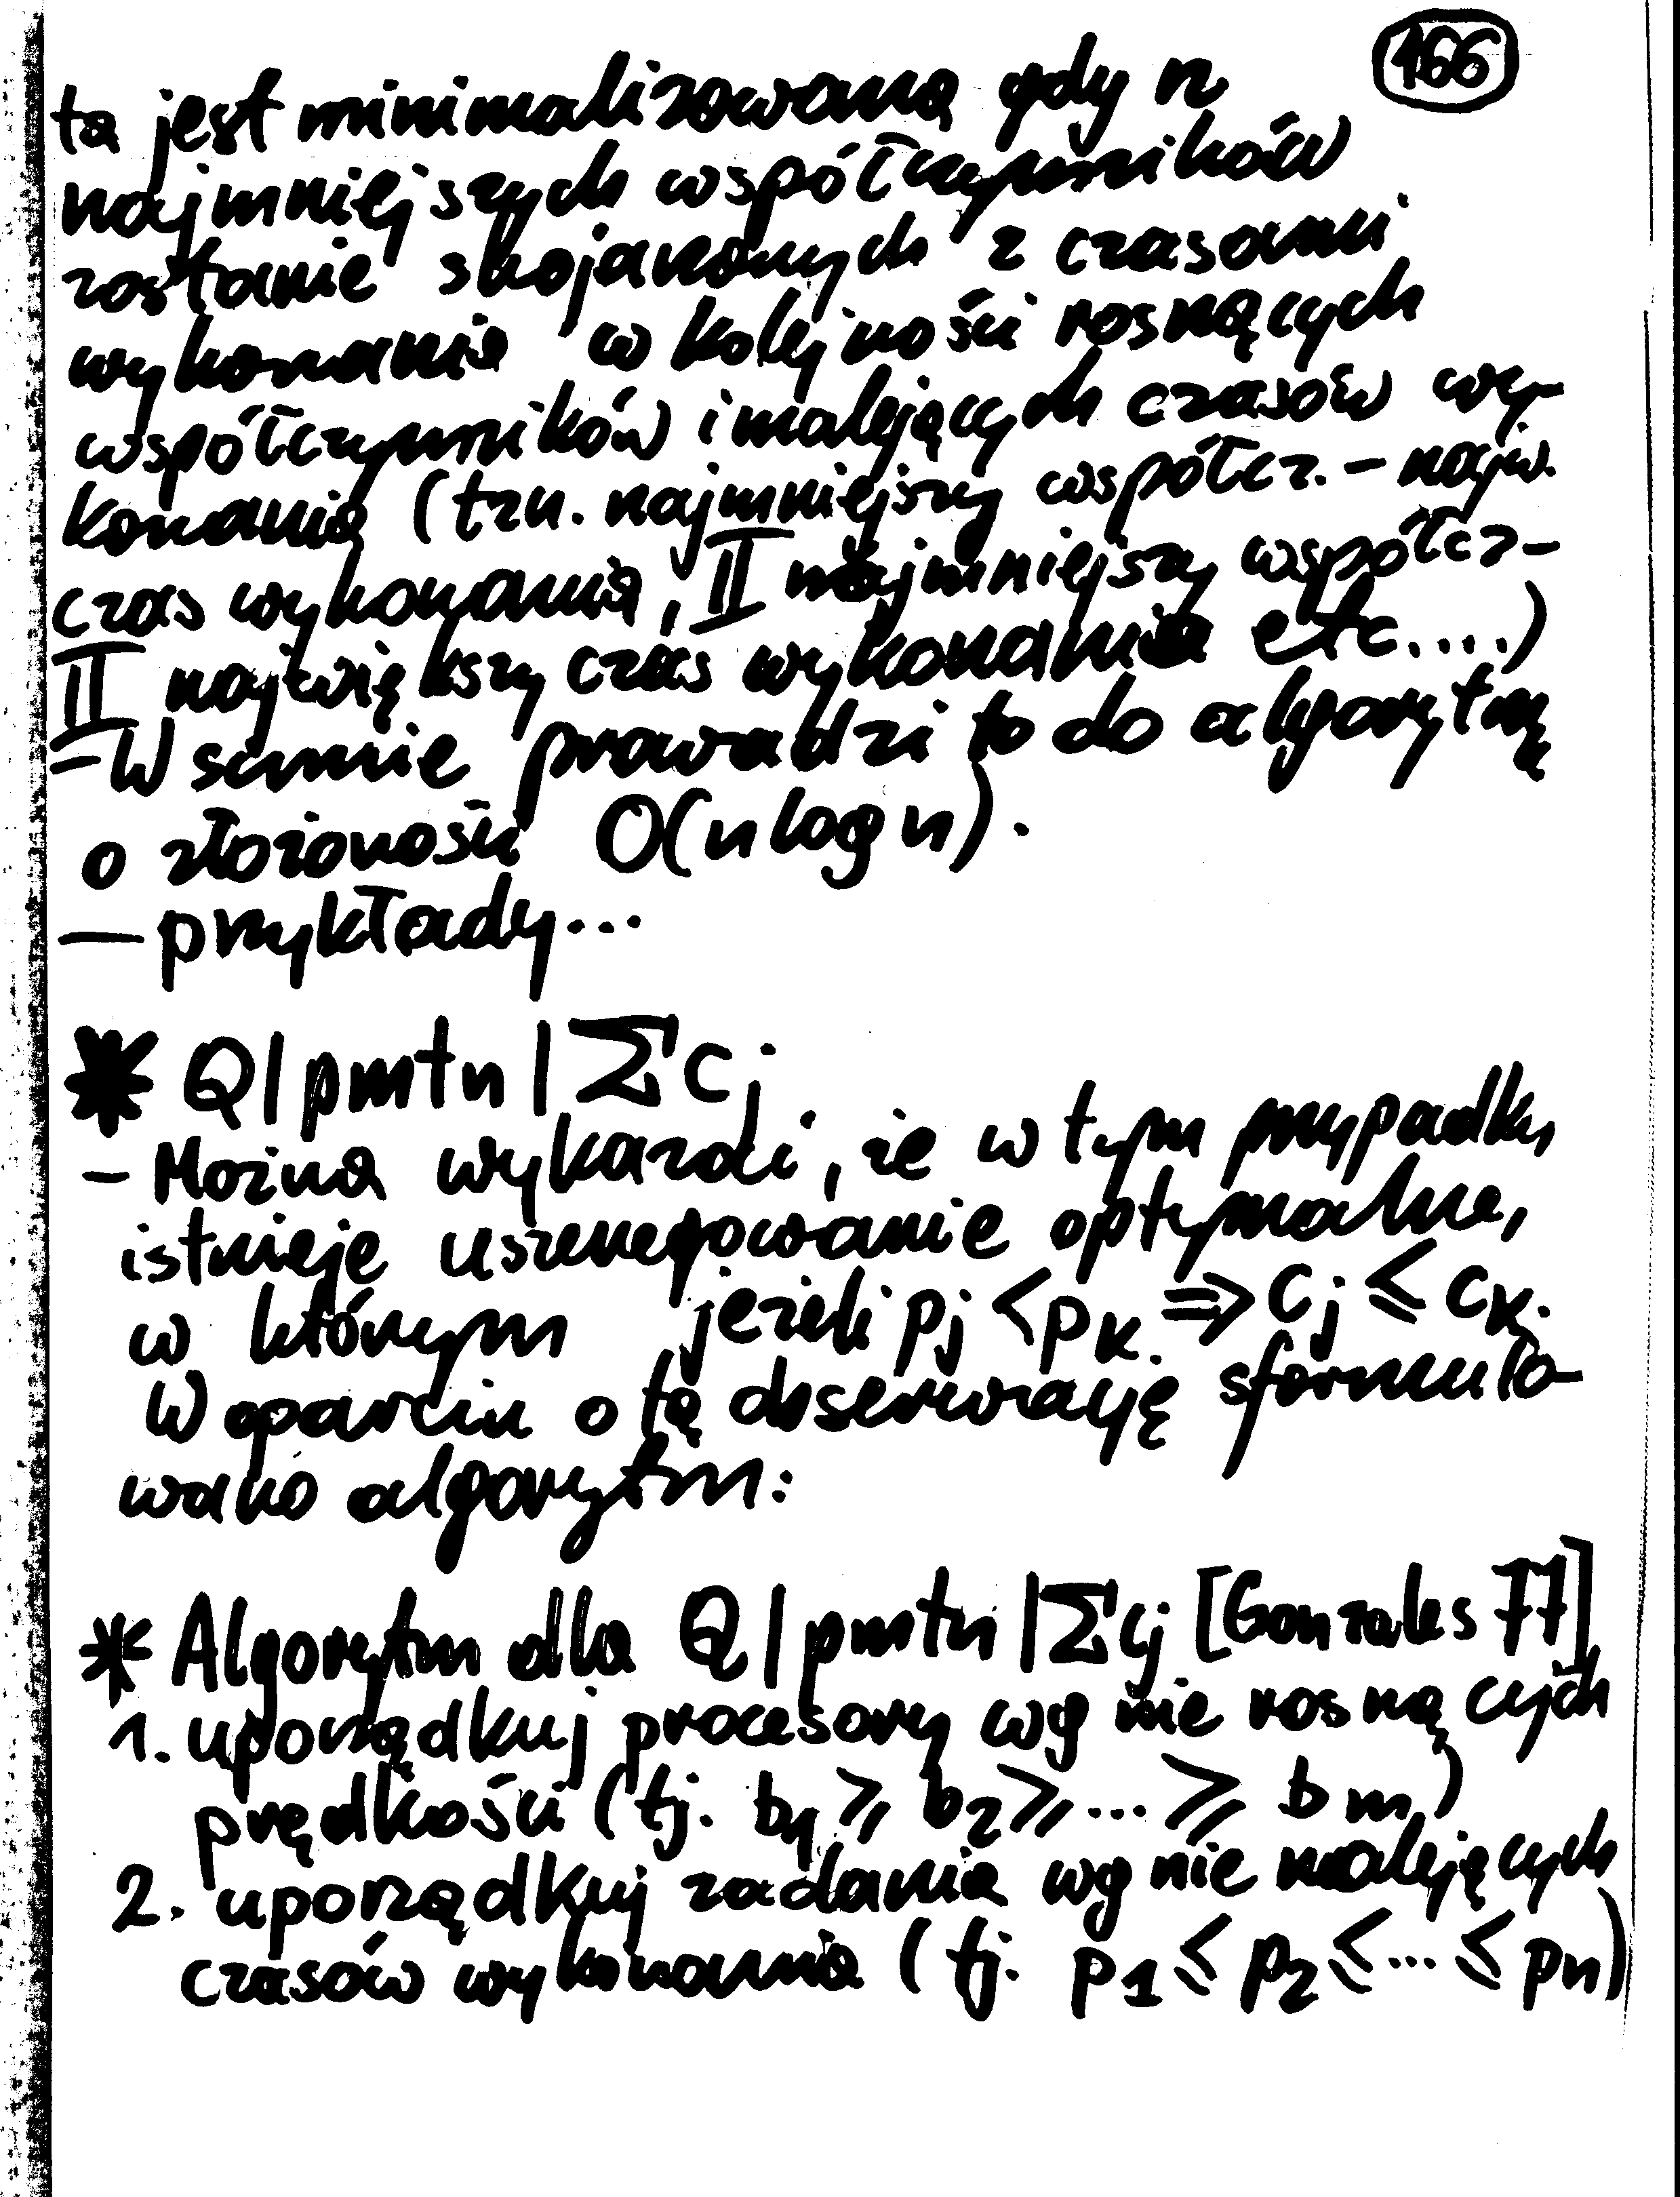 166
ta jest minimalizowana gdy n
najmniejszych współczynników
zostanie skojarzonych z czasami
wykonania w kolejności rosnących
współczynników i malejących czasów wy-
konania (tzn. najmniejszy współcz. - najw.
czas wykonania, II najmniejszy współcz-
II największy czas wykonania etc....)
- W sumie prowadzi to do algorytmu
o złożoności O(n log n).
- przykłady...
* Q|pmtn|ΣCj
- Można wykazać, że w tym przypadku
istnieje uszeregowanie optymalne,
w którym jeżeli pj < pk ⇒ Cj ≤ Ck.
W oparciu o tę obserwację sformuło-
wano algorytm:
* Algorytm dla Q|pmtn|ΣCj [Gonzales 77]
1. uporządkuj procesory wg nie rosnących
prędkości (tj. b1 ≥ b2 ≥ ... ≥ bm)
2. uporządkuj zadania wg nie malejących
czasów wykonania (tj. p1 ≤ p2 ≤ ... ≤ pn)